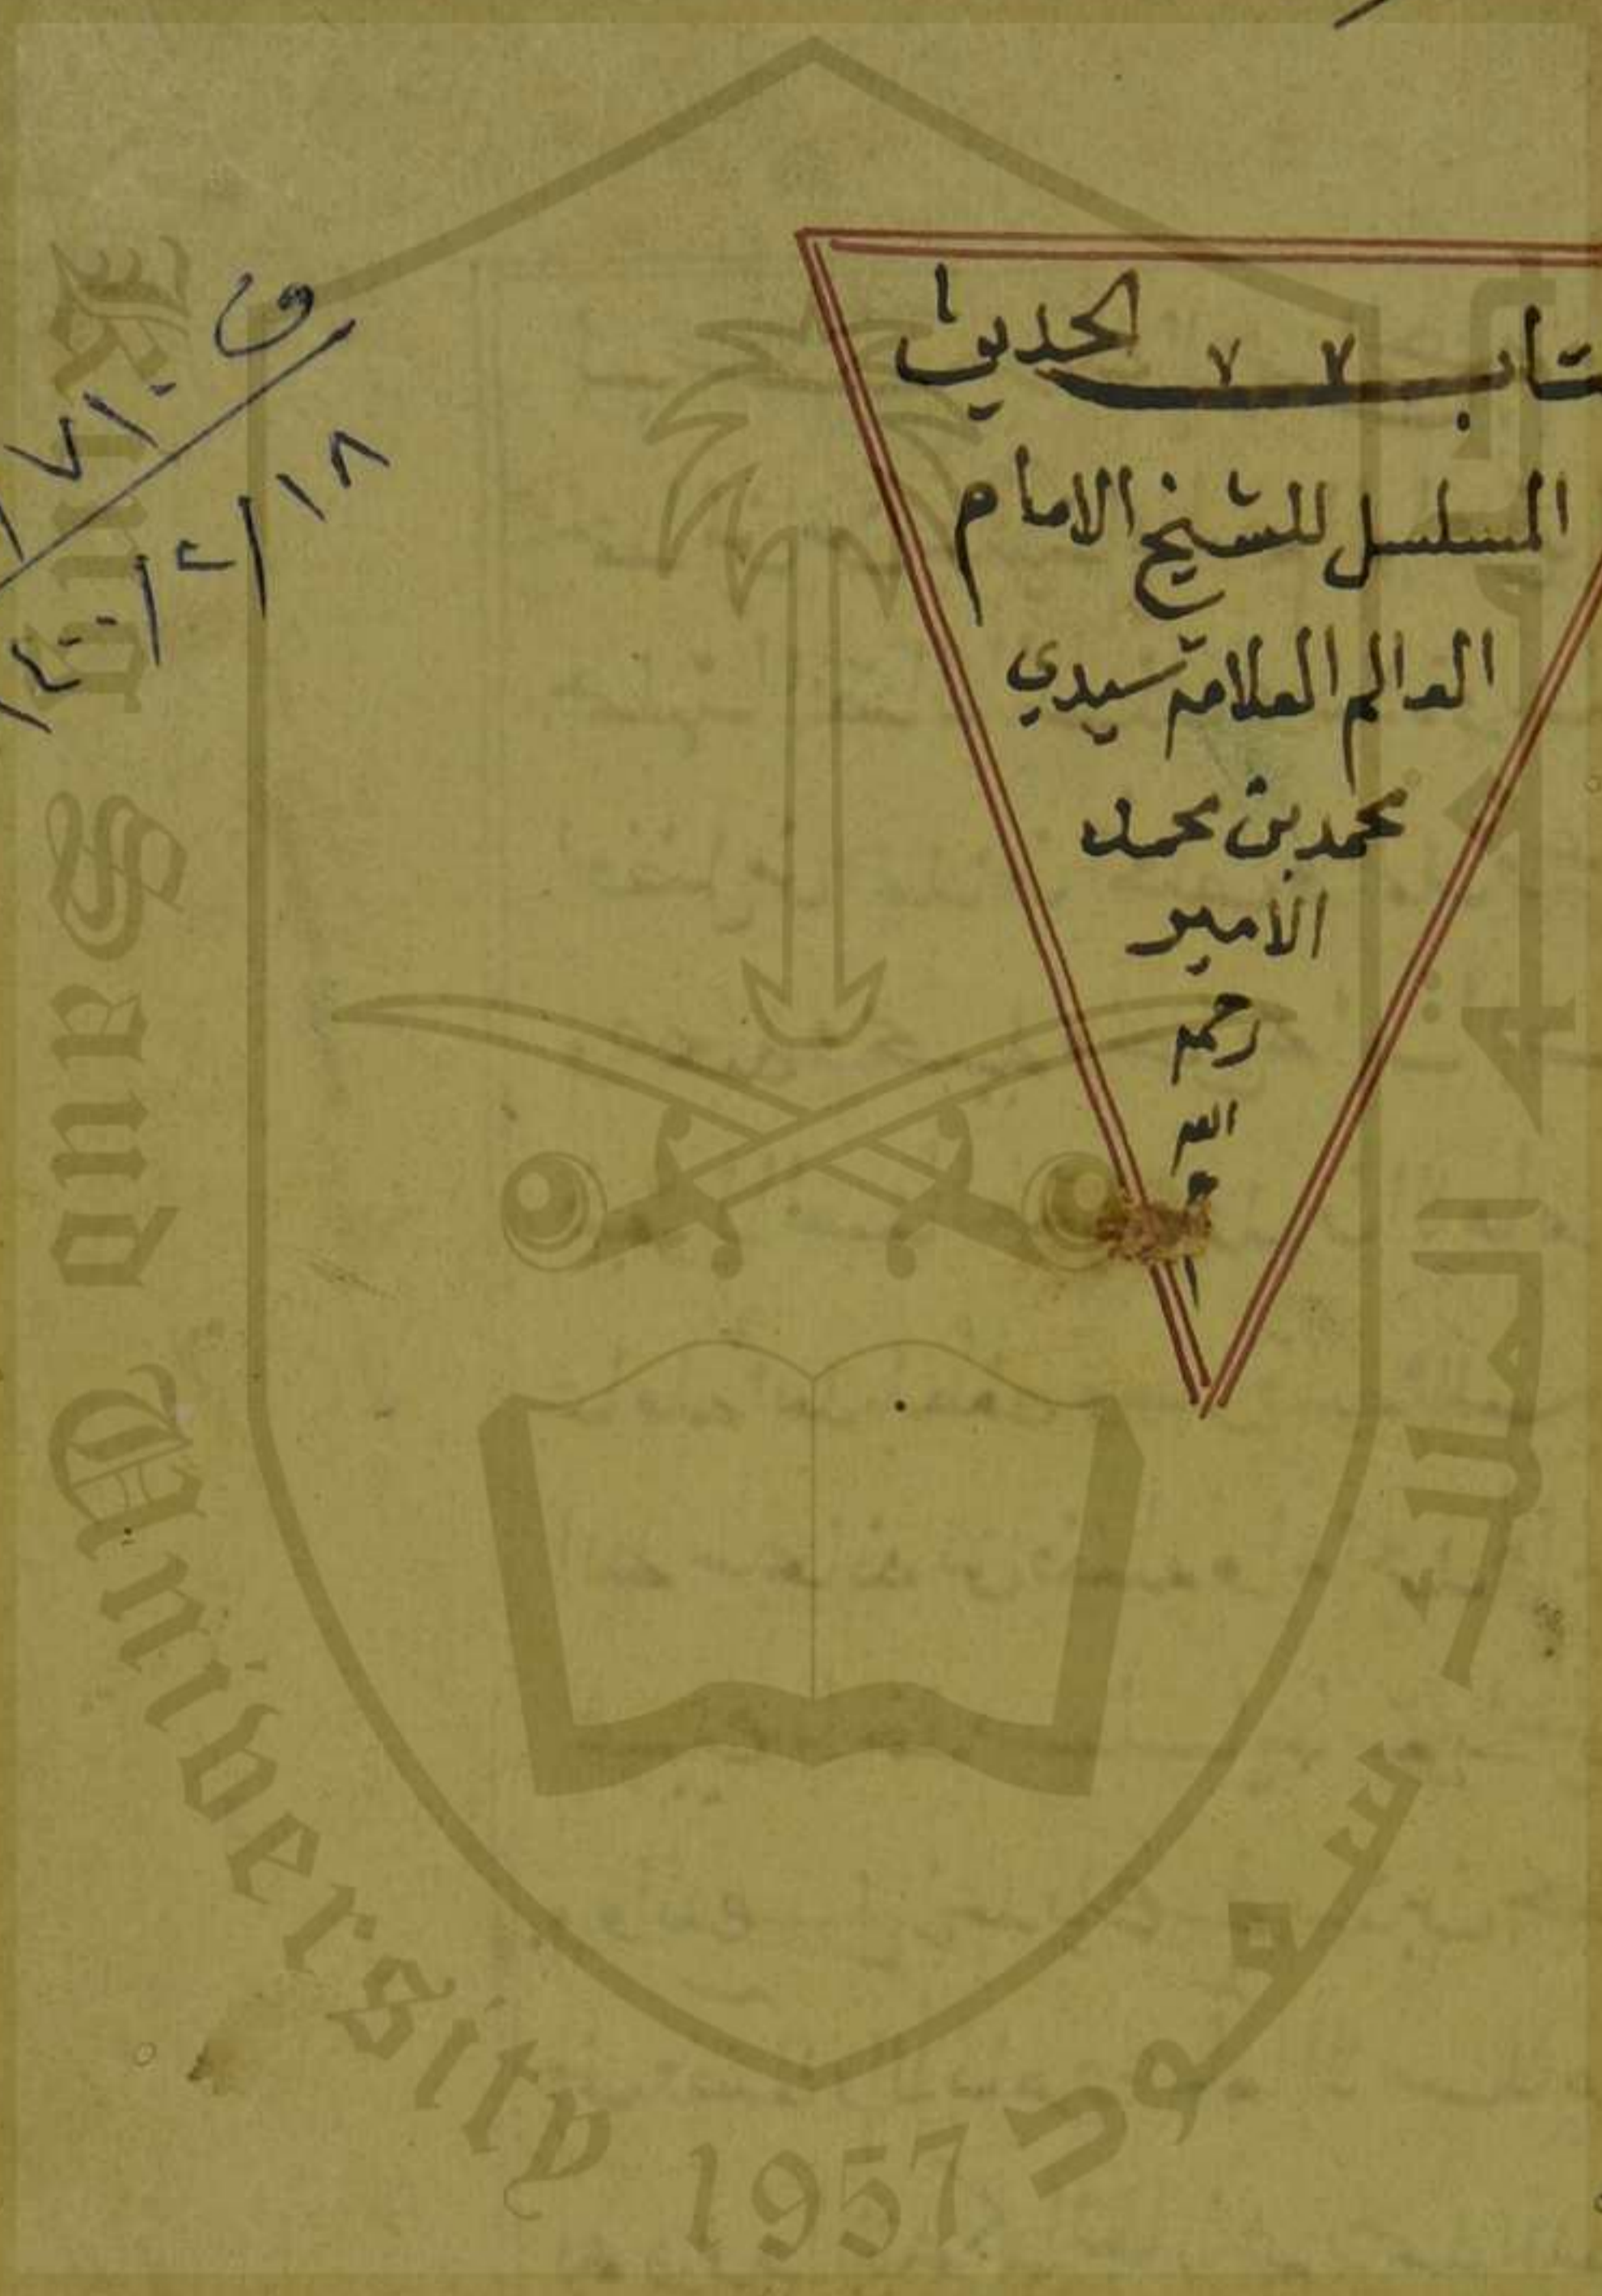 تاب الحديث
المسلسل للشيخ الامام
العالم العلامة سيدي
محمد بن محمد
الأمير
رحمه
الله
ق
٧١٠
١٨/٢/١٤٠٠
King Saud University 1957
سعود